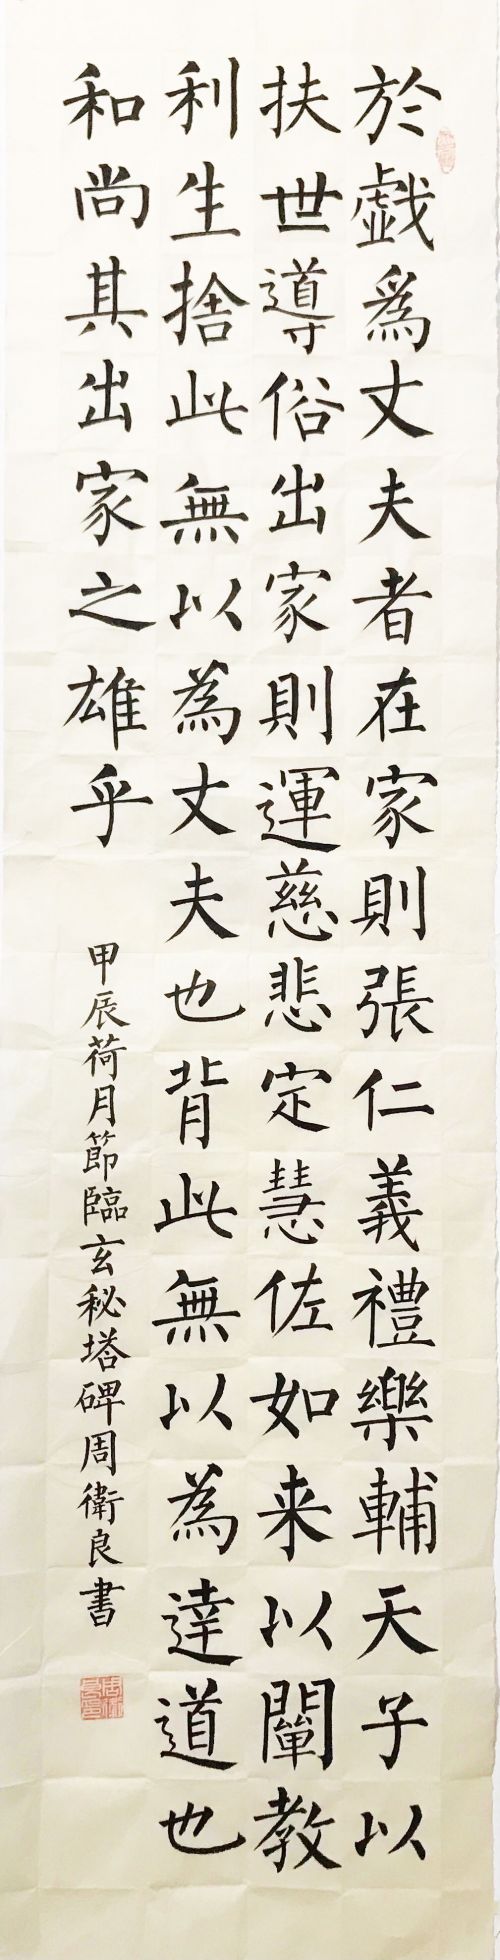 於戲爲丈夫者在家則張仁義禮樂輔天子以
扶世導俗出家則運慈悲定慧佐如来以闡教
利生捨此無以為丈夫也背此無以為達道也
和尚其出家之雄乎
甲辰荷月節臨玄秘塔碑周衛良書